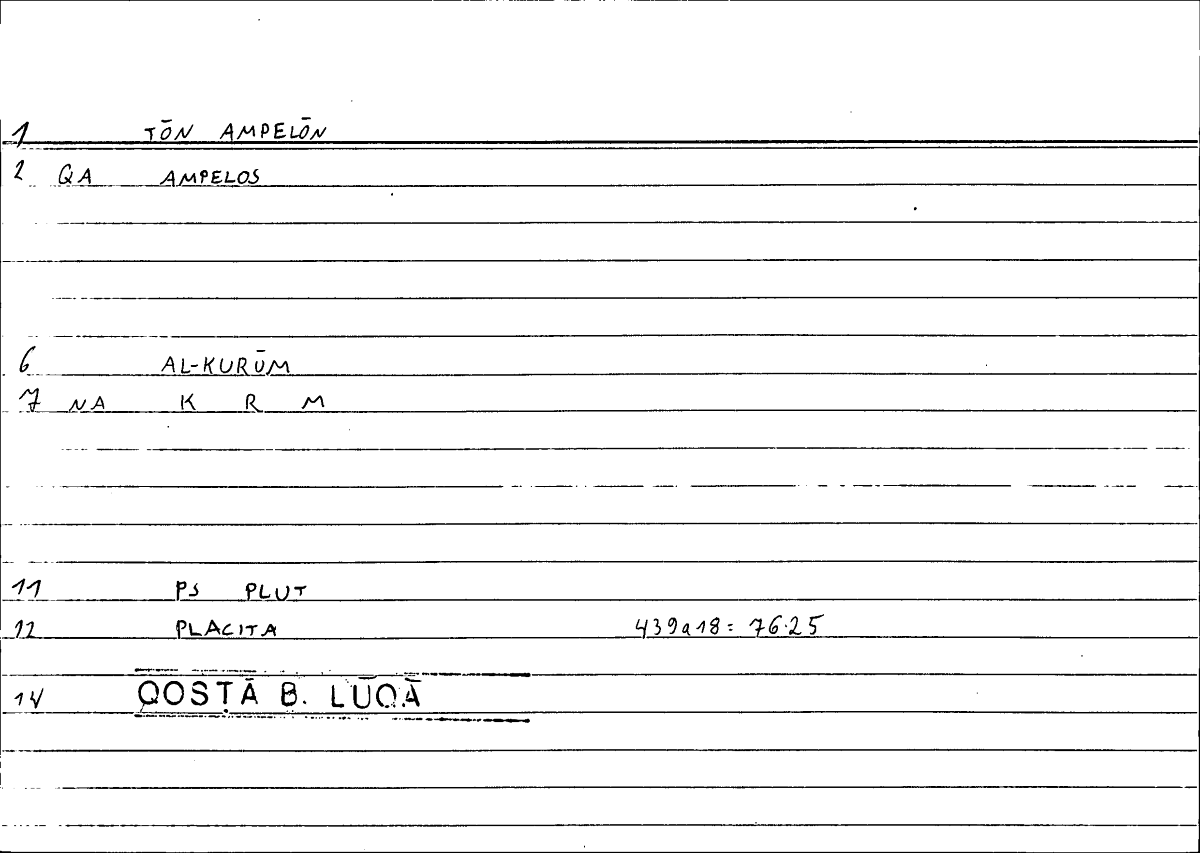 1 TŌN AMPELŌN
2 QA AMPELOS
6 AL-KURŪM
7 NA K R M
11 PS PLUT
12 PLACITA 439a18 = 76.25
14 QOSṬĀ B. LŪQĀ